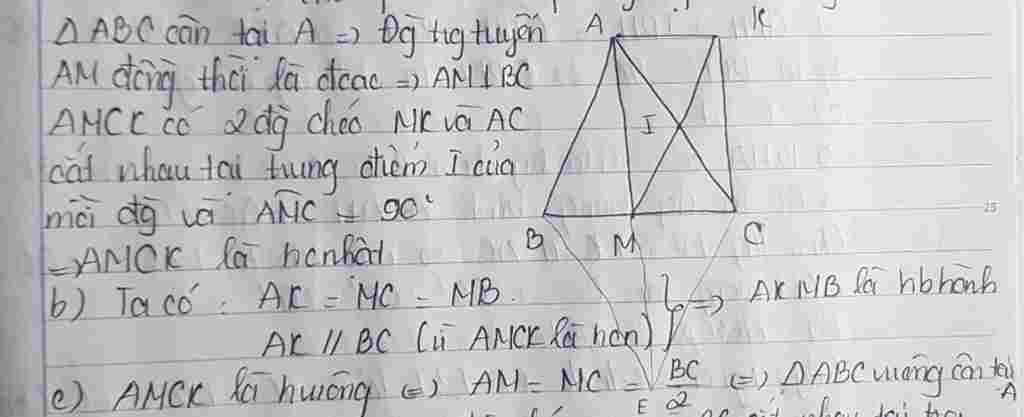 Δ ABC cân tại A => Đg trg tuyến
AM đồng thời là đcao => AM ⊥ BC
AMCK có 2 đg chéo MK và AC
cắt nhau tại trung điểm I của
mỗi đg và AMC = 90°
=> AMCK là hcnhật
b) Ta có : AK = MC = MB.
AK // BC (vì AMCK là hcn)
} => AKMB là hbhành
c) AMCK là hvuông <=> AM = MC = BC/2 <=> Δ ABC vuông cân tại
A
A
K
I
B
M
C
E
15